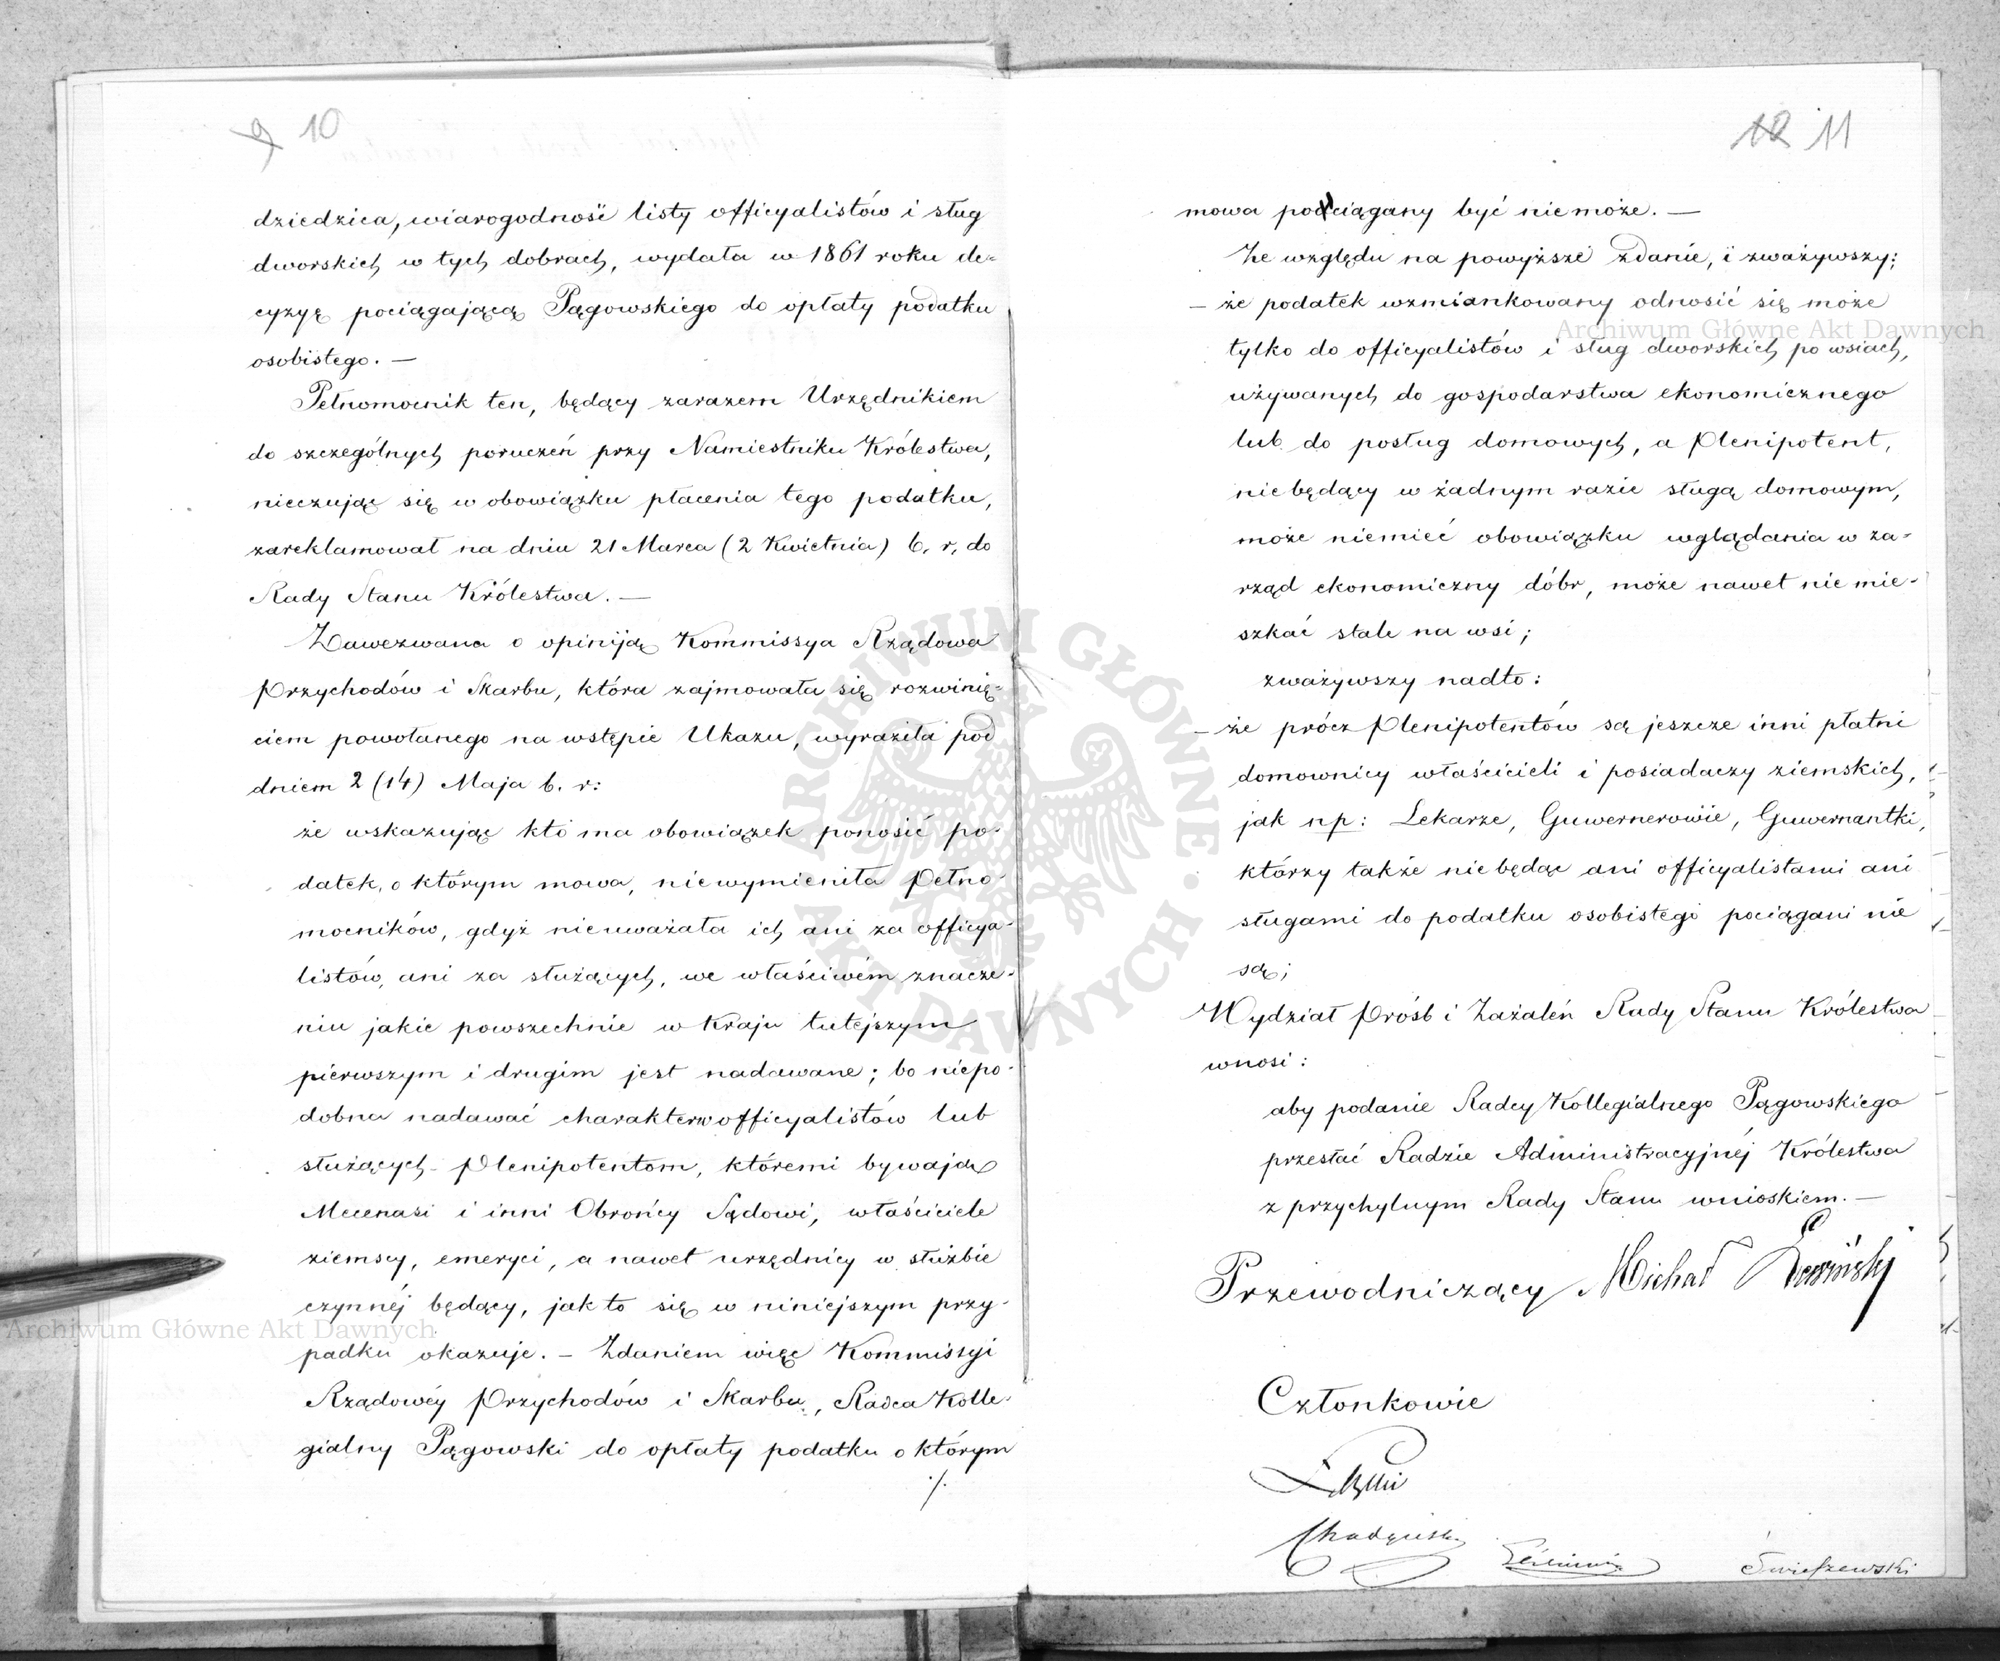 9 10
dziedzica, wiarogodność listy officyalistów i sług
dworskich w tych dobrach, wydała w 1861 roku de=
cyzyę pociągającą Pągowskiego do opłaty podatku
osobistego. —
Pełnomocnik ten, będący zarazem Urzędnikiem
do szczególnych poruczeń przy Namiestniku Królestwa,
nieczując się w obowiązku płacenia tego podatku,
zareklamował na dniu 21 Marca (2 Kwietnia) b. r. do
Rady Stanu Królestwa. —
Zawezwana o opiniją Kommissya Rządowa
Przychodów i Skarbu, która zajmowała się rozwinię=
ciem powołanego na wstępie Ukazu, wyraziła pod
dniem 2 (14) Maja b. r:
że wskazując kto ma obowiązek ponosić po-
datek, o którym mowa, niewymieniła Pełno-
mocników, gdyż nieuważała ich ani za officya-
listów, ani za służących, we właściwém znacze-
niu jakie powszechnie w Kraju tutejszym
pierwszym i drugim jest nadawane; bo niepo-
dobna nadawać charakteru officyalistów lub
służących Plenipotentom, któremi bywają
Mecenasi i inni Obrońcy Sądowi, właściciele
ziemscy, emeryci, a nawet urzędnicy w służbie
czynnéj będący, jak to się w niniejszym przy-
padku okazuje. — Zdaniem więc Kommissyi
Rządowéy Przychodów i Skarbu, Radca Kolle-
gialny Pągowski do opłaty podatku o którym
./.
10 11
mowa pociągany być niemoże. —
Ze względu na powyższe zdanie, i zważywszy;
— że podatek wzmiankowany odnosić się może
tylko do officyalistów i sług dworskich po wsiach,
używanych do gospodarstwa ekonomicznego
lub do posług domowych, a Plenipotent,
niebędący w żadnym razie sługą domowym,
może niemieć obowiązku wglądania w za-
rząd ekonomiczny dóbr, może nawet nie mie-
szkać stale na wsi;
zważywszy nadto:
— że prócz Plenipotentów są jeszcze inni płatni
domownicy właścicieli i posiadaczy ziemskich,
jak np: Lekarze, Guwernerowie, Guwernantki,
którzy także niebędąc ani officyalistami ani
sługami do podatku osobistego pociągani nie
są;
Wydział Próśb i Zażaleń Rady Stanu Królestwa
wnosi:
aby podanie Radcy Kollegialnego Pągowskiego
przesłać Radzie Administracyjnéj Królestwa
z przychylnym Rady Stanu wnioskiem. —
Przewodniczący Michał
Członkowie
Świeszewski
Archiwum Główne Akt Dawnych
Archiwum Główne Akt Dawnych
ARCHIWUM GŁÓWNE AKT DAWNYCH